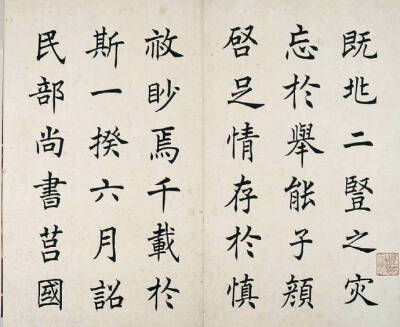 既兆二豎之灾
忘於舉能子顏
啓足情存於慎
赦眇焉千載於
斯一揆六月詔
民部尚書莒國